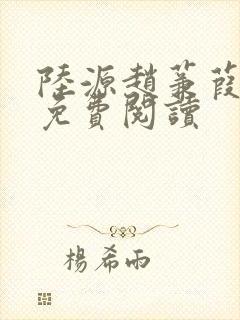 陸源趙蒹葭
免費閱讀
楊希雨